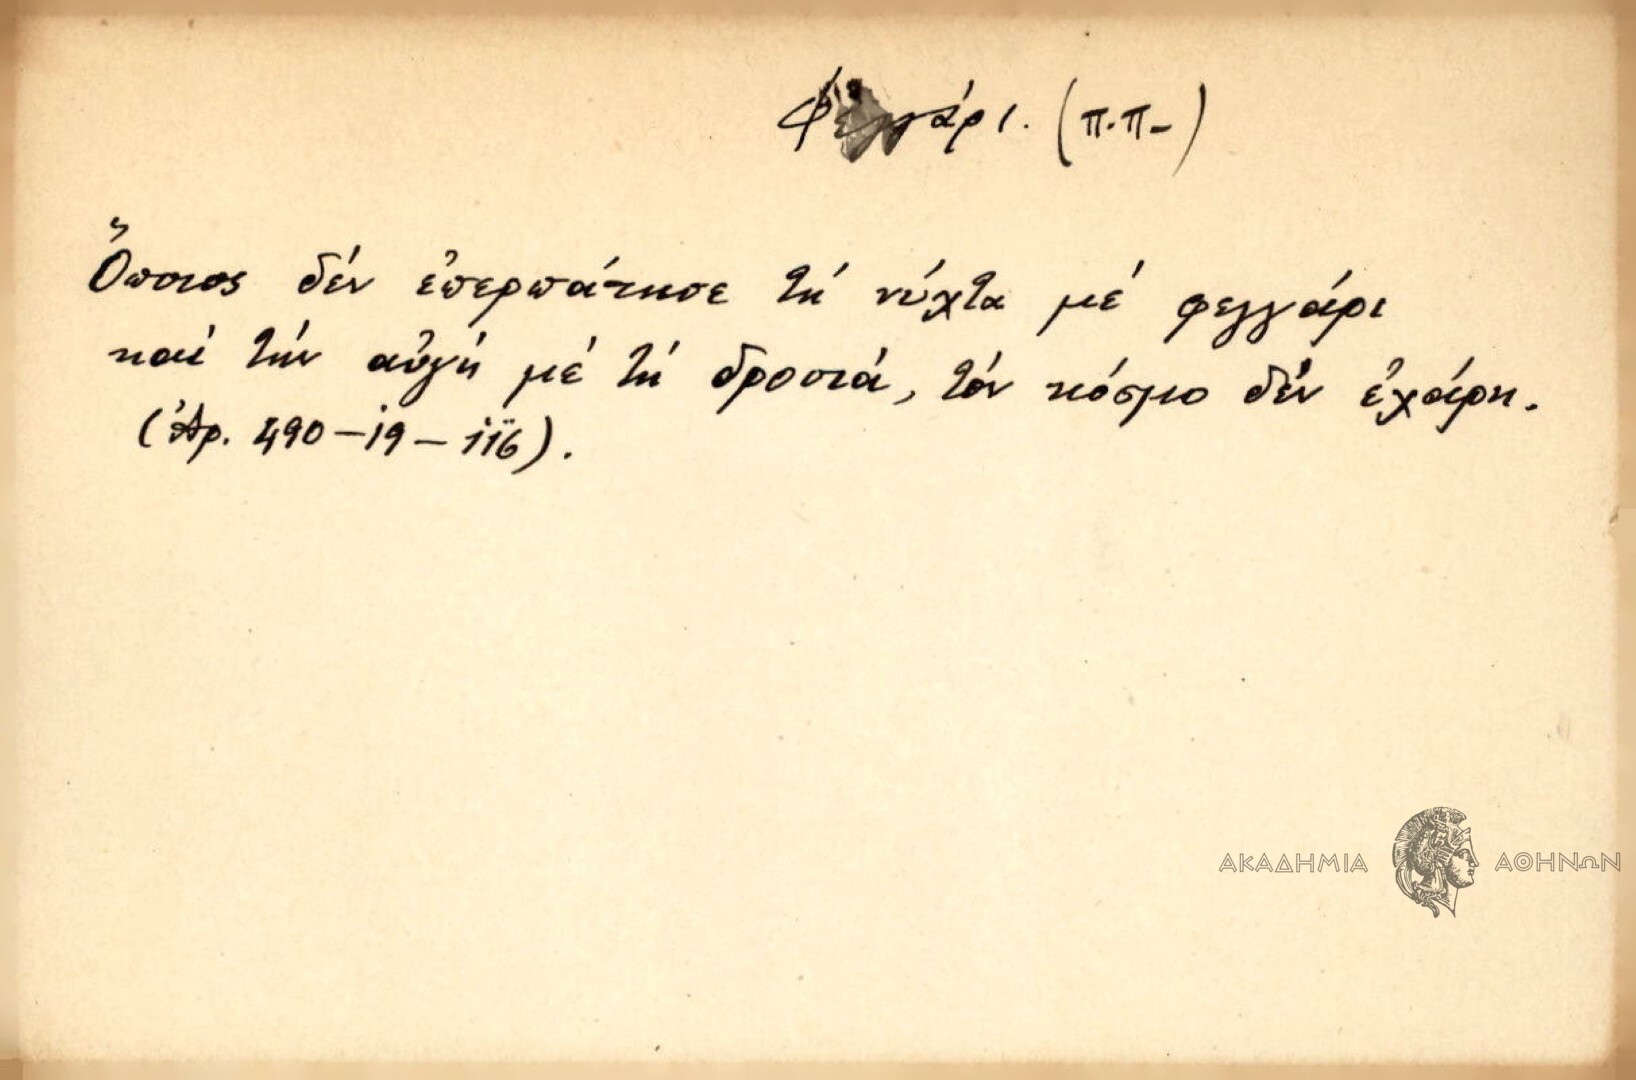 Φεγγάρι. (π.π-)
Ὅποιος δέν ἐπερπάτησε τή νύχτα μέ φεγγάρι
καί τήν αὐγή μέ τή δροσιά, τόν κόσμο δέν ἐχάρη.
(Ἀρ. 490-19-116).
ΑΚΑΔΗΜΙΑ ΑΘΗΝΩΝ